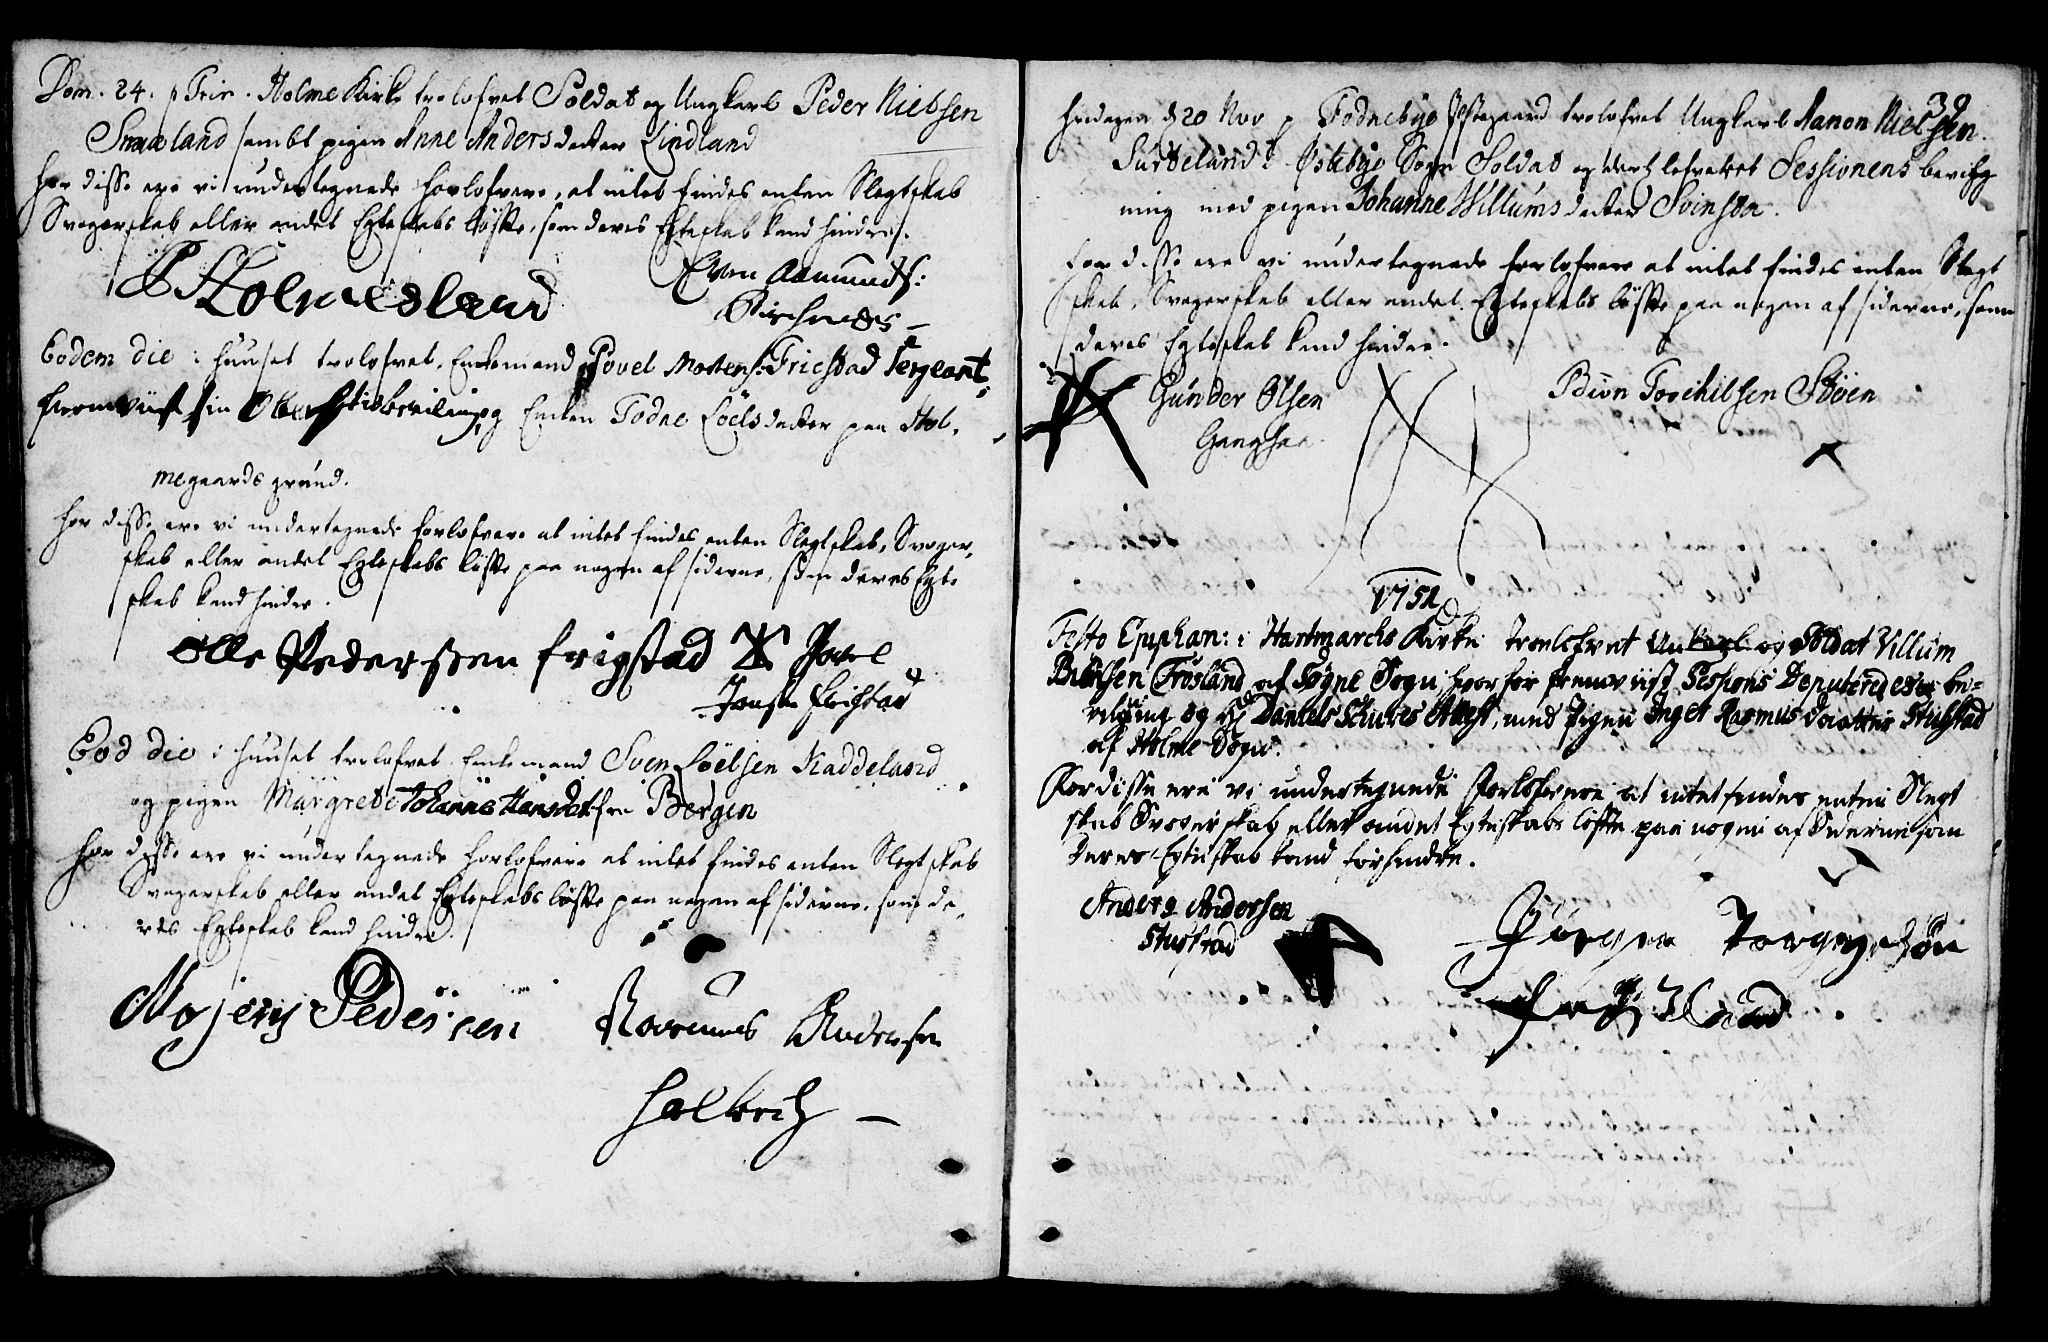 Dom. 24. p Trin. Holme Kirke trolofvet Soldat og Ungkarl Peder Nielsen
Smaeland sambt pigen Anne Andersdatter Lindland
For disse ere vi undertegnede Forlofvere, at intet findes enten Slegtskab
Svogerskab eller andet Egteskabs løffte, som deres Egteskab kand hindre.
P. Holmesland
Even Aamunds:
Eodem die i huuset trolofvet Enkemand Povel Mortens: Fricstad Sergeant
fremviist sin og Enken Todne Loëlsdatter paa Hol-
megaards grund.
For disse ere vi undertegnede Forlofvere at intet findes enten Slegtskab, Svoger-
skab eller andet Egteskabs løffte paa nogen af siderne, som deres Egte
skab kand hindre.
Olle Pederssen frigstad Povel
Frichstad
Eod die i huuset trolofvet Enkemand Sven Loëlsen Kaddeland
og pigen Margrete Johanne Hansdet: fra Bergen
For disse ere vi undertegnede Forlofvere at intet findes enten Slegtskab
Svogerskab eller andet Egteskabs løffte paa nogen af siderne, som de-
res Egteskab kand hindre.
Mojens Pedersen Rasmus Andersen
39
fredagen d 20 Nov p Todneby trolofvet Ungkarl Aanon Nielsen
i Øslebye Sogn Soldat og Sessionens bevilg
ning med pigen Johanne Willumsdatter Svinstøe.
For disse ere vi undertegnede forlofvere at intet findes enten Slegt
skab, Svogerskab eller andet Egteskabs løffte paa nogen af siderne, som
deres Egteskab kand hindre.
Gunder Olsen Biørn Torchilsen Støen
1752
Festo Epiphan: i Hartmarchs Kirke troelofvet Unkarl og Soldat Villum
Frøsland af Søgne Sogn, hvorfor fremviist Sessions Deputeredes be-
vilging og Hr Daniels Attest, med Pigen Inget Rasmus Daatter Stubstad
af Holme Sogn.
For disse ere vi undertegnede Forlofvere at intet findes enten Slegt
skab Svogerskab eller andet Egteskabs løffte paa nogen af Siderne som
deres Egteskab kand forhindre.
Anders Andersen
Stubstad